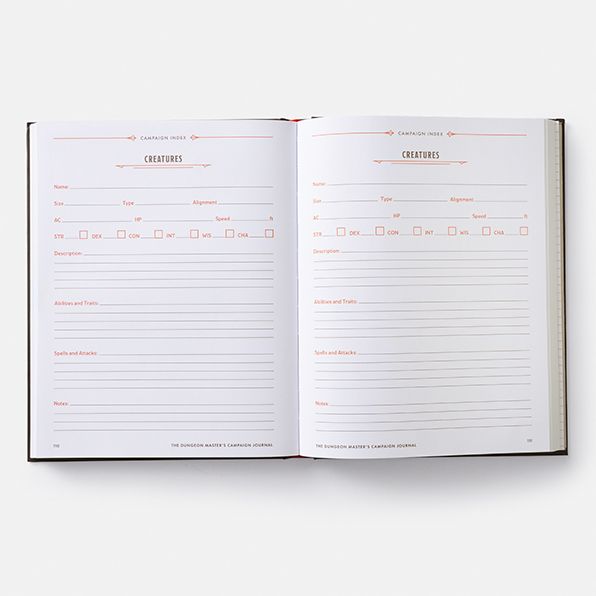 CAMPAIGN INDEX
CREATURES
Name:
Size Type Alignment
AC HP Speed ft
STR DEX CON INT WIS CHA
Description:
Abilities and Traits:
Spells and Attacks:
Notes:
110 THE DUNGEON MASTER'S CAMPAIGN JOURNAL
CAMPAIGN INDEX
CREATURES
Name:
Size Type Alignment
AC HP Speed ft
STR DEX CON INT WIS CHA
Description:
Abilities and Traits:
Spells and Attacks:
Notes:
THE DUNGEON MASTER'S CAMPAIGN JOURNAL 111